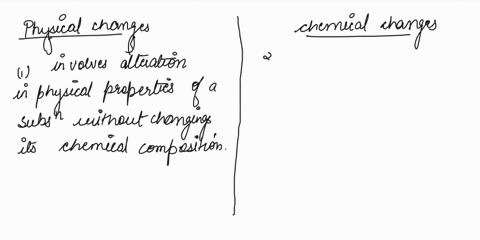 Physical changes
(1) involves alteration
in physical properties of a
subsⁿ without changings
its chemical composition.
chemical changes